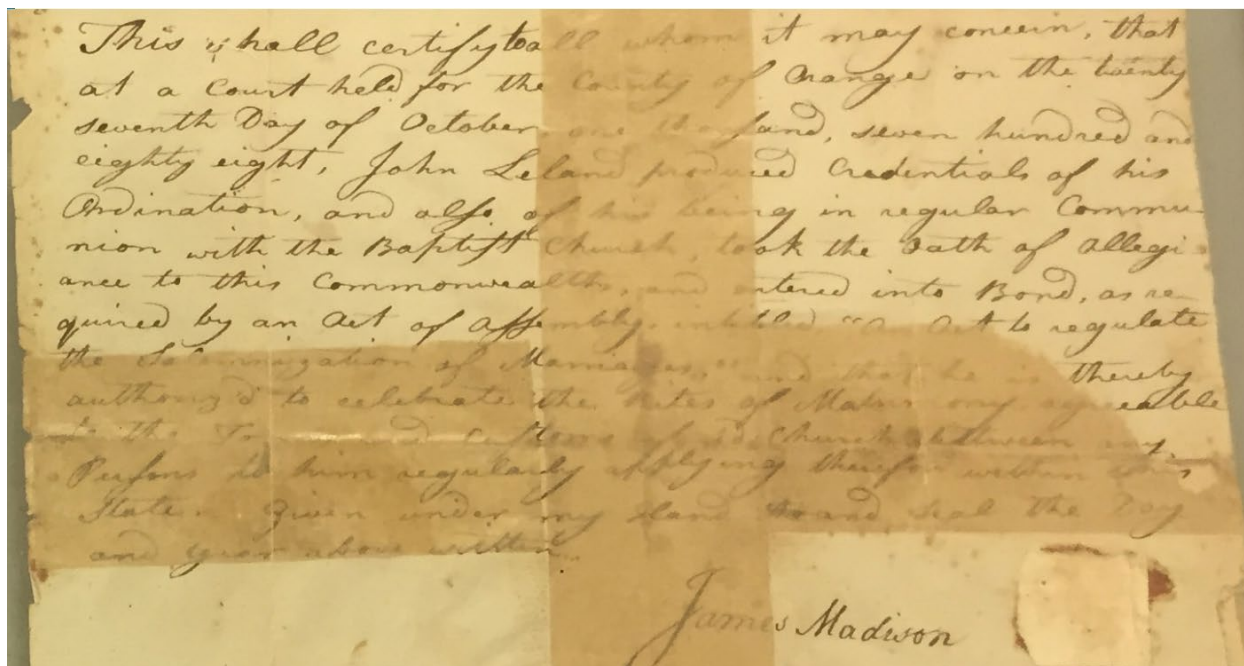 This shall certify to all whom it may concern, that
at a Court held for the County of Orange on the twenty
seventh Day of October one thousand, seven hundred and
eighty eight, John Leland produced Credentials of his
Ordination, and also of his being in regular Commu-
nion with the Baptist Church, took the Oath of Allegi-
ance to this Commonwealth, and entered into Bond, as re-
quired by an Act of Assembly, intitled "An Act to regulate
the Solemnization of Marriages," and that he is thereby
authoriz'd to celebrate the Rites of Matrimony agreeable
to the and Customs of sd. Church between any
Persons to him regularly applying therefor within this
State. Given under my Hand and Seal the Day
and year above written.
James Madison